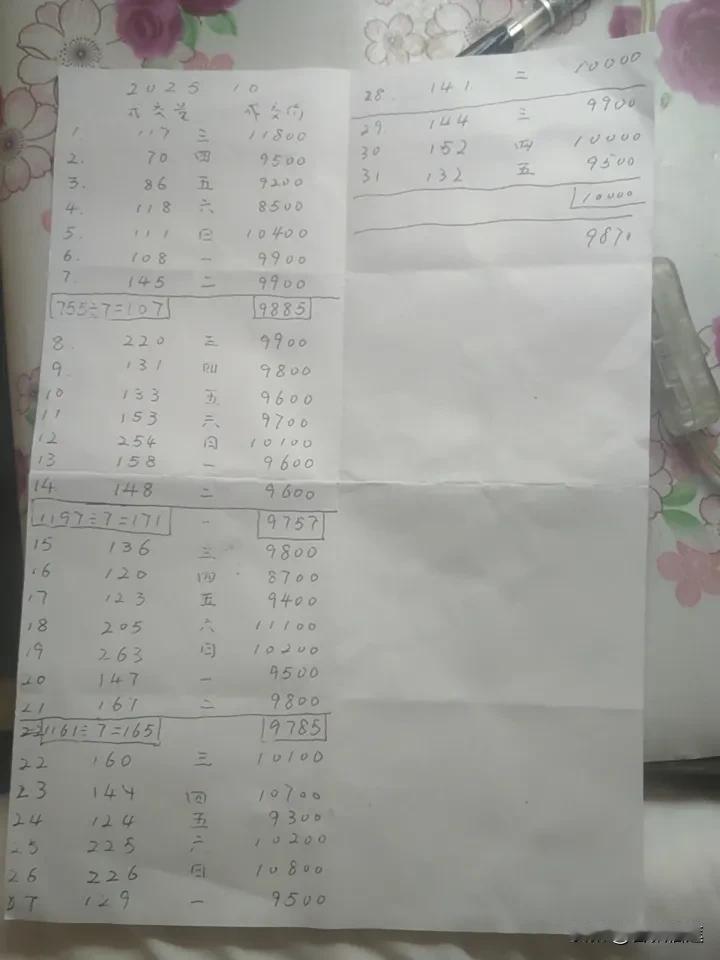 2025 10
成交量 成交价
1. 117 三 11800
2. 70 四 9500
3. 86 五 9200
4. 118 六 8500
5. 111 日 10400
6. 108 一 9900
7. 145 二 9900
755÷7=107 9885
8. 220 三 9900
9. 131 四 9800
10 133 五 9600
11 153 六 9700
12 254 日 10100
13 158 一 9600
14. 148 二 9600
1197÷7=171 一 9757
15 136 三 9800
16 120 四 8700
17 123 五 9400
18 205 六 11100
19 263 日 10200
20 147 一 9500
21 167 二 9800
22 1161÷7=165 9785
22 160 三 10100
23 144 四 10700
24 124 五 9300
25 225 六 10200
26 226 日 10800
27 129 一 9500
28. 141 二 10000
29. 144 三 9900
30 152 四 10000
31 132 五 9500
10000
9870